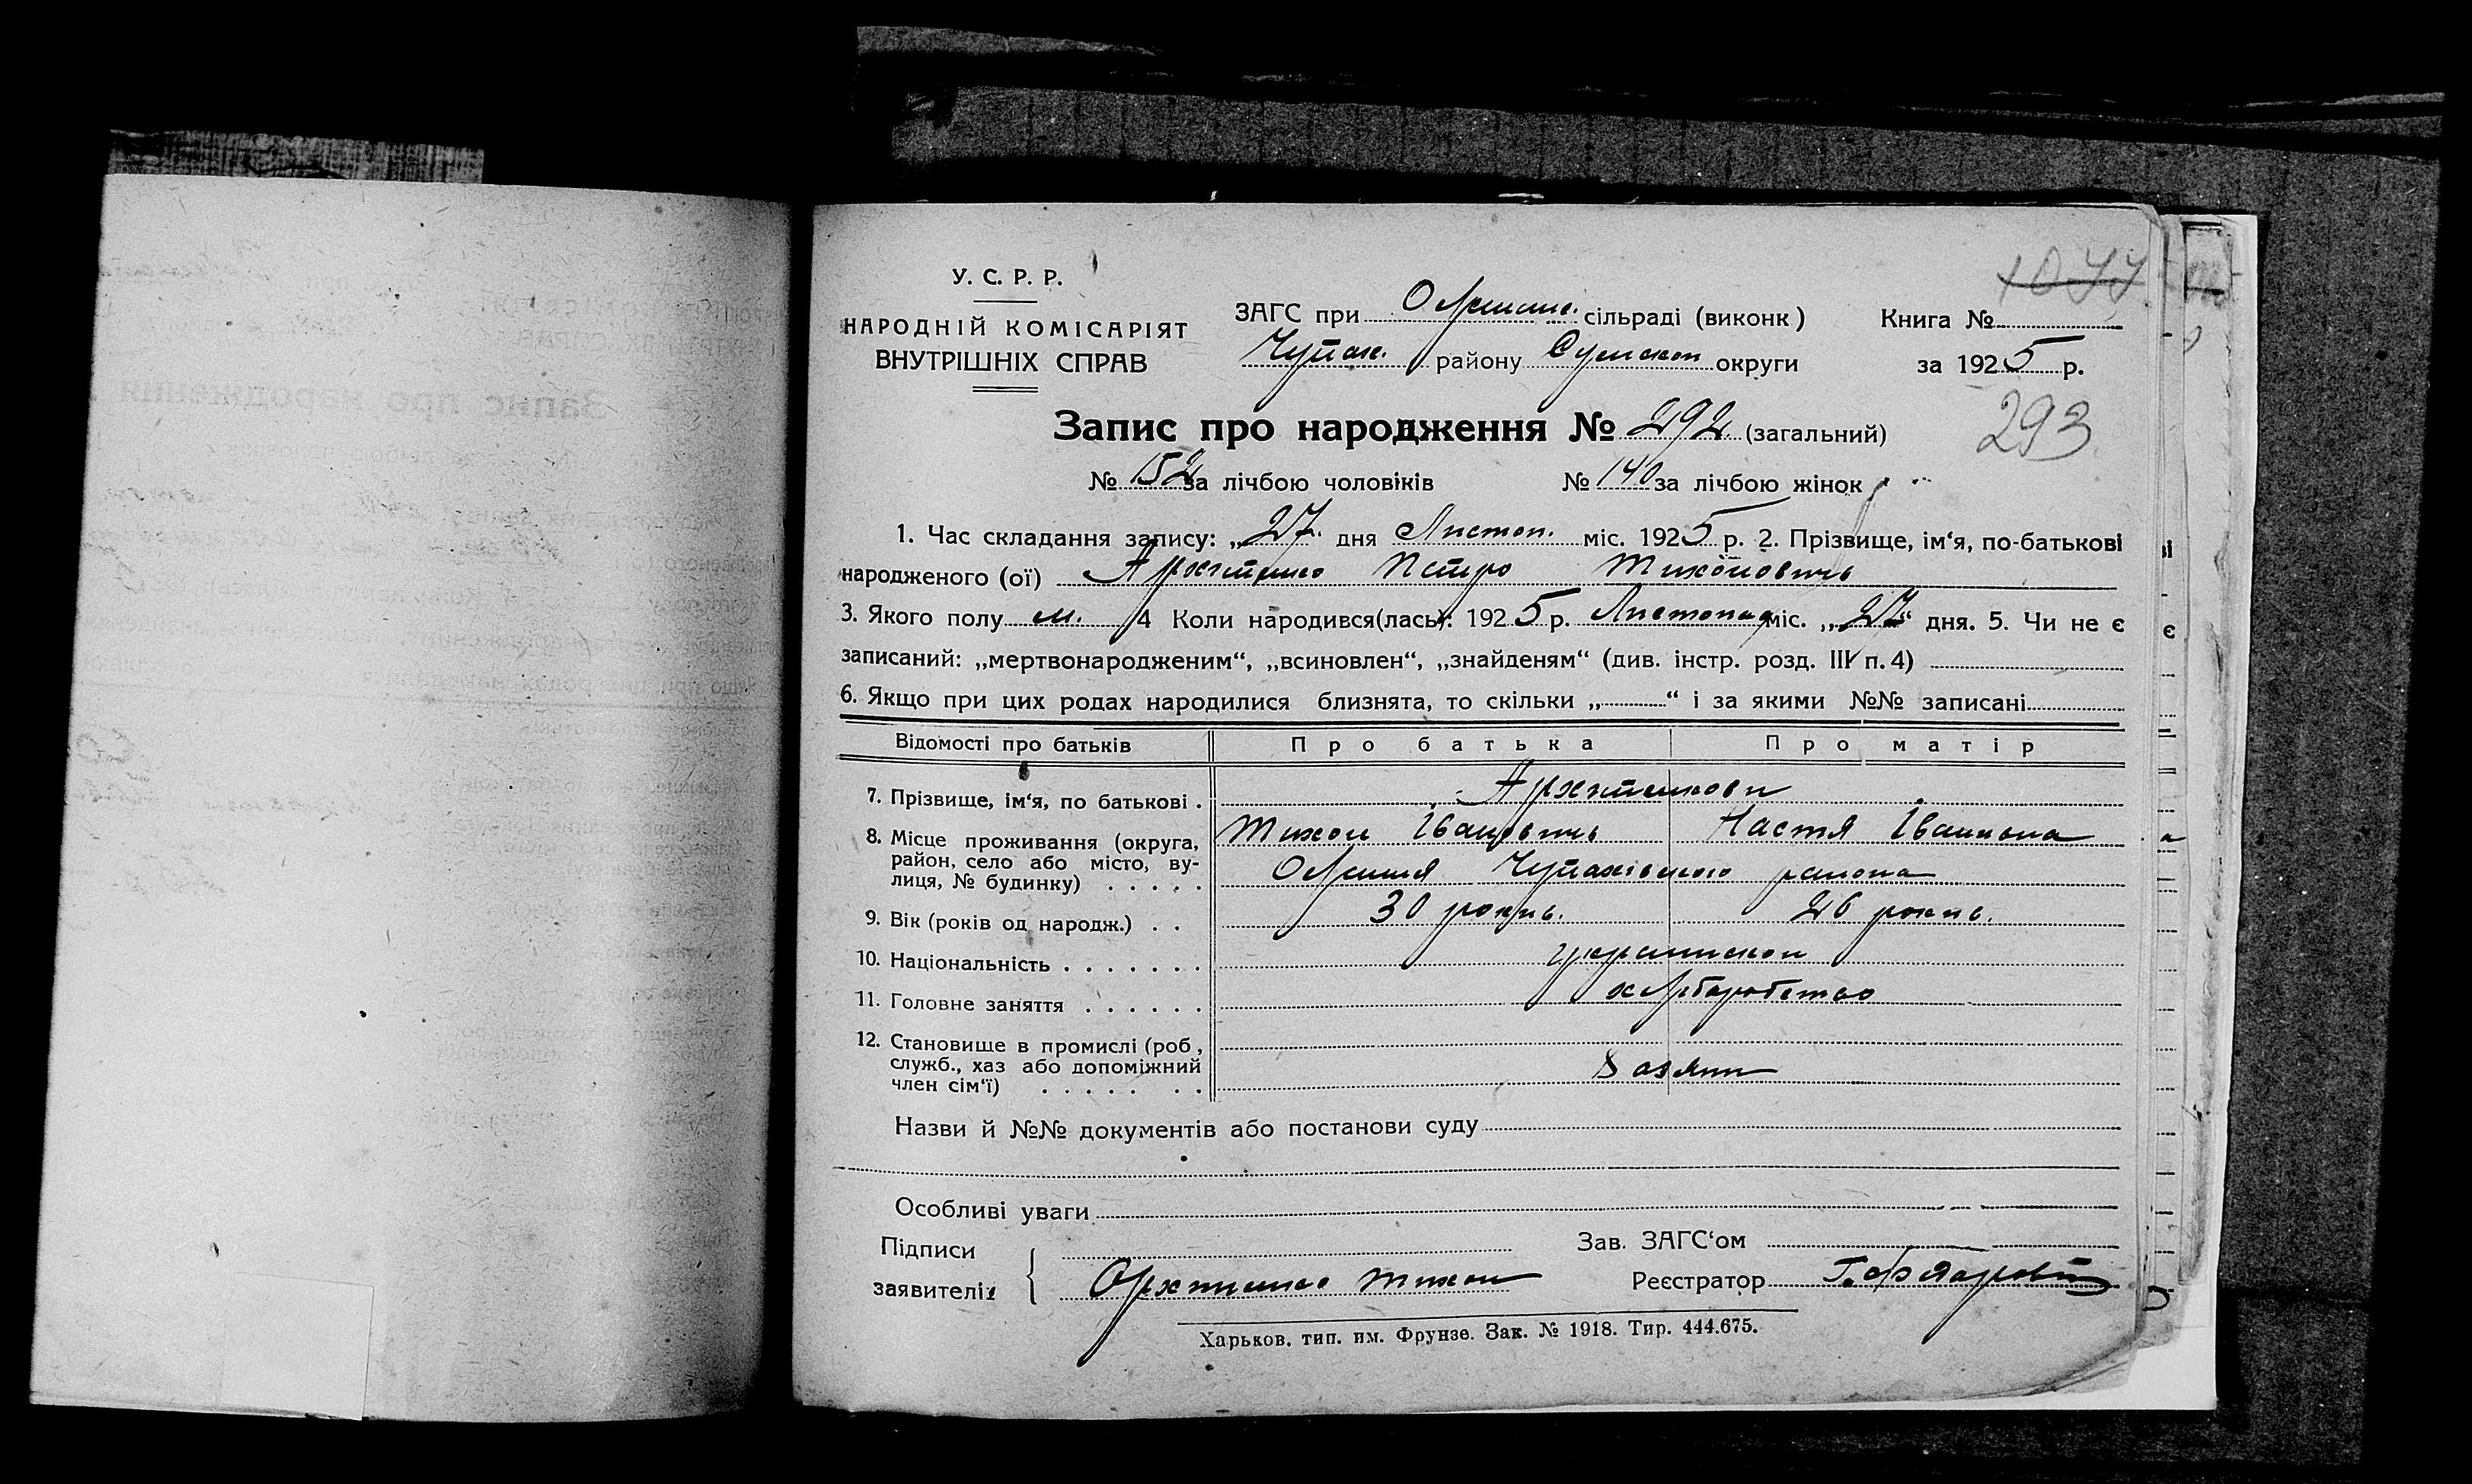 У. С. Р. Р.
НАРОДНІЙ КОМІСАРІЯТ
ВНУТРІШНІХ СПРАВ
ЗАГС при Олешан. сільраді (виконк)
Чупах. району Сумскои округи
Книга №
за 1925 р.
1044
293
Запис про народження № 292 (загальний)
№ 152 за лічбою чоловіків № 140 за лічбою жінок
1. Час складання запису: „27" дня Листоп. міс. 1925 р. 2. Прізвище, ім‘я, по-батькові
народженого (ої) Архипенко Петро Тихонович
3. Якого полу м. 4 Коли народився(лась): 1925 р. Листопад міс. „27“ дня. 5. Чи не є
записаний: „мертвонародженим“, „всиновлен“, „знайденям“ (див. інстр. розд. III п. 4)
6. Якщо при цих родах народилися близнята, то скільки „ “ і за якими №№ записані
Відомості про батьків Про батька Про матір
7. Прізвище, ім‘я, по батькові .
Тихон Івановичь Настя Івановна
8. Місце проживання (округа, район, село або місто, вулиця, № будинку) . . . . .
Олешня Чупахівского района
9. Вік (років од народж.) . . 30 рокив. 26 рокив.
10. Національність . . . . . . . украинскои
11. Головне заняття . . . . . . хліборобство
12. Становище в промислі (роб, служб., хаз або допоміжний член сім‘ї) . . . . . . .
Назви й №№ документів або постанови суду
Особливі уваги
Підписи
заявителів
Зав. ЗАГС‘ом
Реєстратор
Харьков. тип. им. Фрунзе. Зак. № 1918. Тир. 444.675.